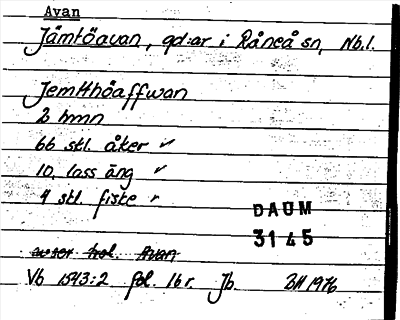 Avan
Jämtöavan, gd:ar i Råneå sn, Nb.l.
Jemtthöaffwan
2 hmn
66 stl. åker
10. lass äng
4 stl. fiske
DAUM
3145
avser hel. Avan
Vb 1543:2 fol. 16 r. Jb BH 1976